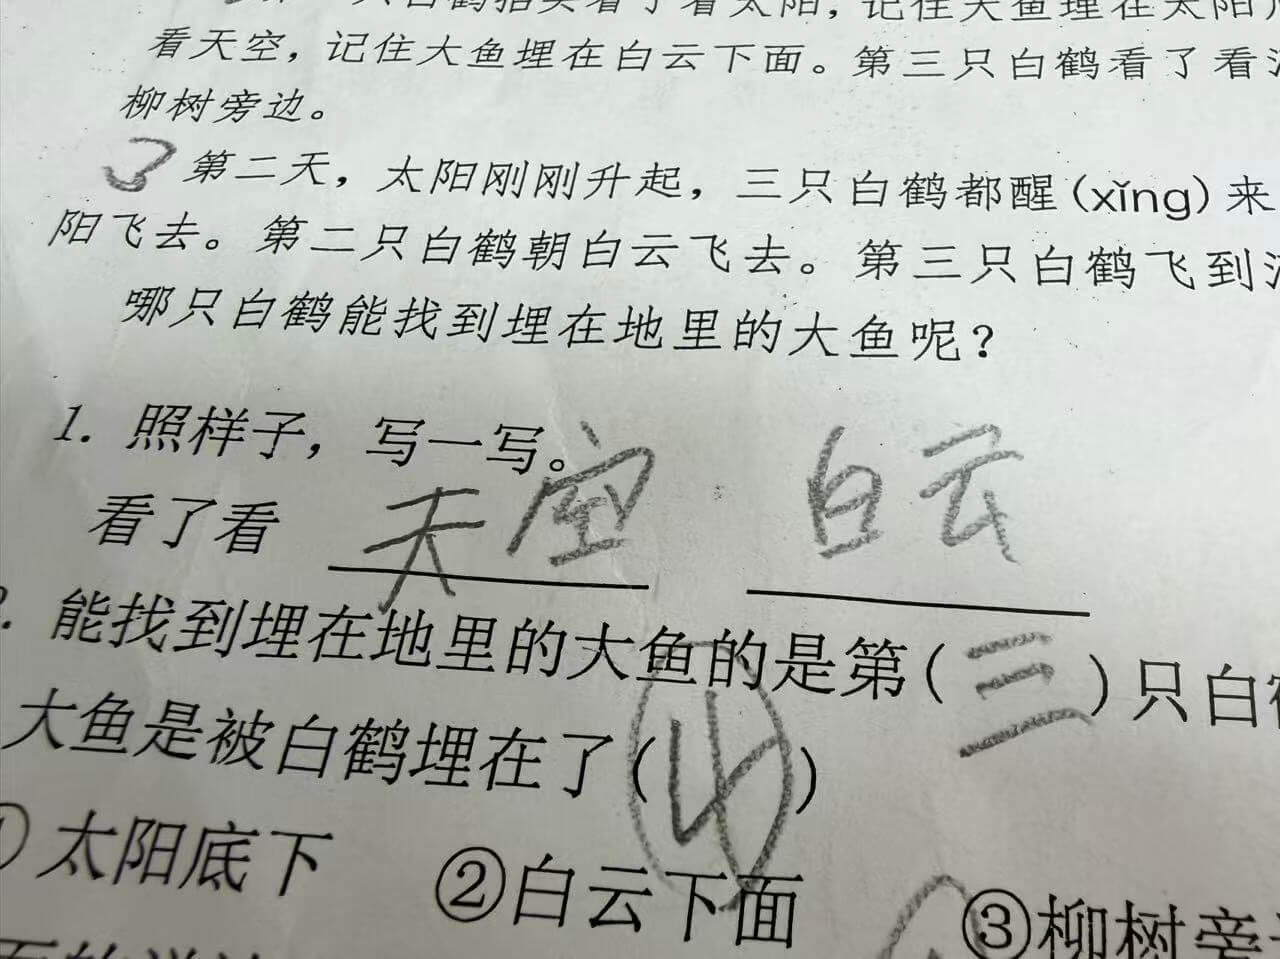 只白鹤抬头看了看太阳，记住大鱼埋在太阳
看天空，记住大鱼埋在白云下面。第三只白鹤看了看
柳树旁边。
3 第二天，太阳刚刚升起，三只白鹤都醒(xǐng)来
阳飞去。第二只白鹤朝白云飞去。第三只白鹤飞到
哪只白鹤能找到埋在地里的大鱼呢？
1. 照样子，写一写。
看了看 天空 白云
. 能找到埋在地里的大鱼的是第(三)只白
大鱼是被白鹤埋在了(④)
① 太阳底下 ②白云下面 ③柳树旁